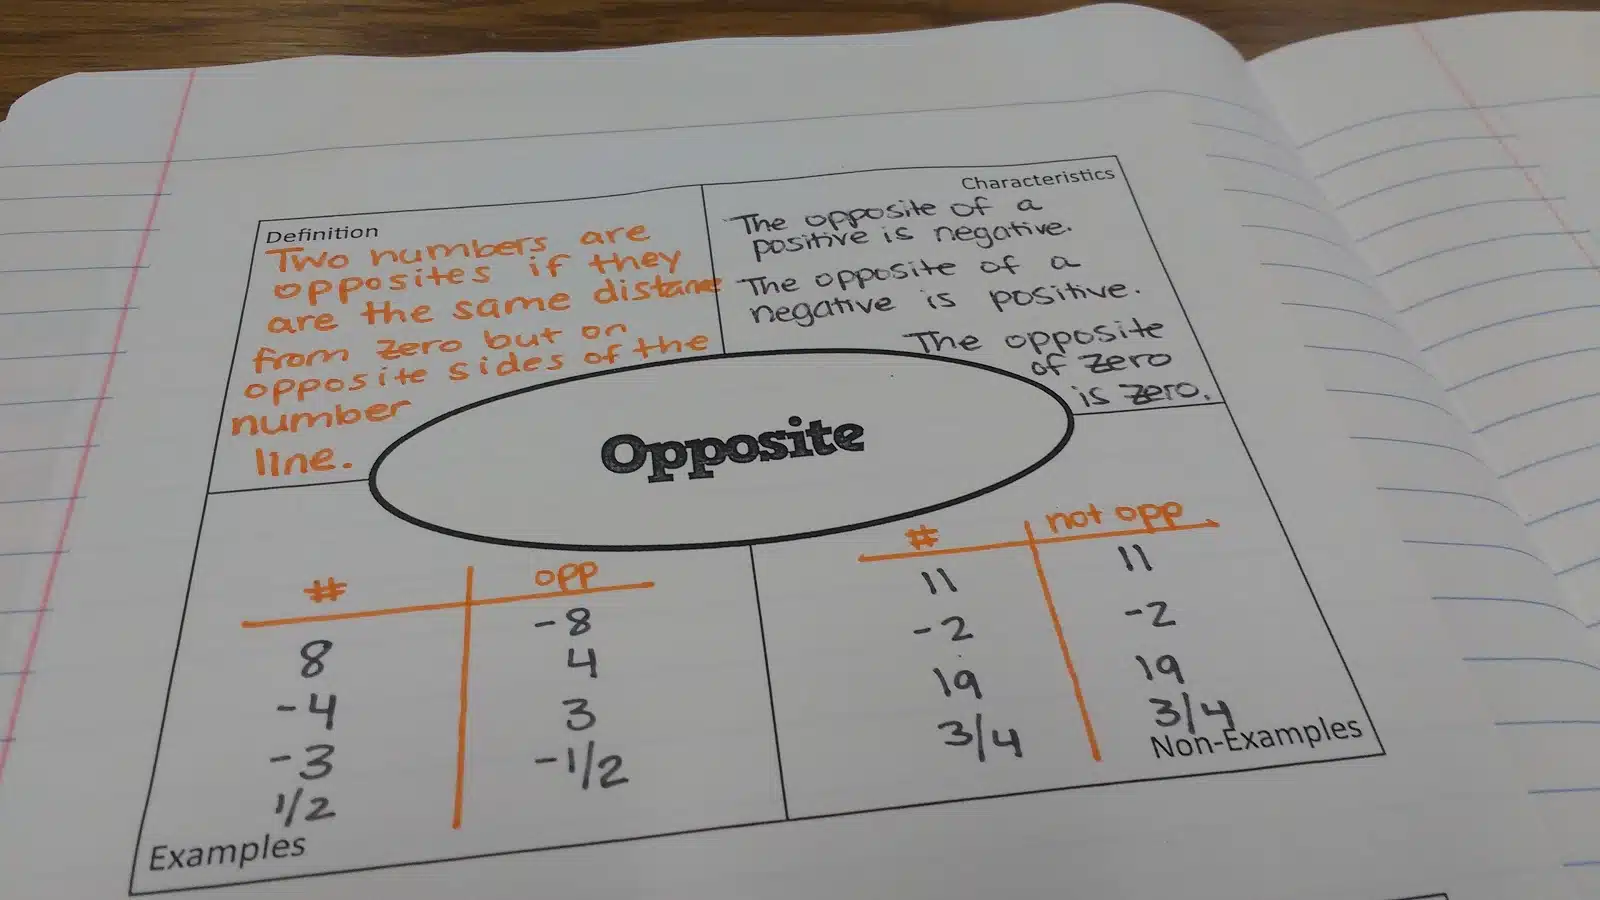 Definition
Two numbers are
opposites if they
are the same distance
from zero but on
opposite sides of the
number
line.
Characteristics
The opposite of a
positive is negative.
The opposite of a
negative is positive.
The opposite
of zero
is zero.
Opposite
# opp
8 -8
-4 4
-3 3
1/2 -1/2
Examples
# not opp
11 11
-2 -2
19 19
3/4 3/4
Non-Examples